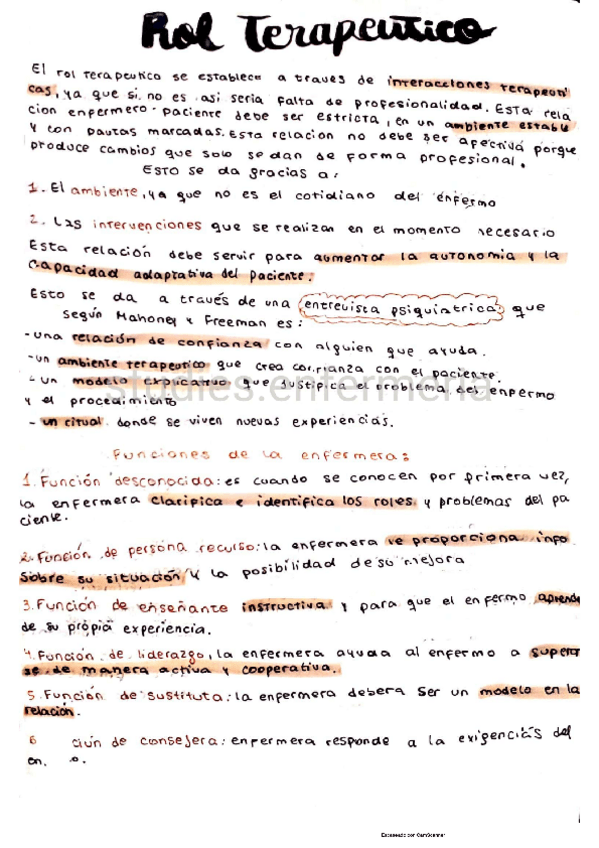 Rol Terapeutico
El rol terapeutico se establece a través de interacciones terapeuti
cas, ya que si no es asi seria falta de profesionalidad. Esta rela
cion enfermero-paciente debe ser estricta, en un ambiente estable
y con pautas marcadas. Esta relacion no debe ser afectiva porque
produce cambios que solo se dan de forma profesional.
Esto se da gracias a:
1. El ambiente, ya que no es el cotidiano del enfermo
2. Las intervenciones que se realizan en el momento necesario
Esta relación debe servir para aumentar la autonomia y la
capacidad adaptativa del paciente.
Esto se da a través de una entrevista psiquiatrica que
según Mahoney y Freeman es:
-una relación de confianza con alguien que ayuda.
-un ambiente terapeutico que crea confianza con el paciente.
- un modelo explicativo que justifica el problema del enfermo
y el procedimiento
- un ritual donde se viven nuevas experiencias.
studies.enfermeria
Funciones de la enfermera:
1. Función desconocida: es cuando se conocen por primera vez,
la enfermera clarifica e identifica los roles y problemas del pa
ciente.
2. Función de persona recurso: la enfermera le proporciona info
sobre su situación y la posibilidad de su mejora
3. Función de enseñante instructiva y para que el enfermo aprende
de su propia experiencia.
4. Función de liderazgo, la enfermera ayuda al enfermo a superar
se de manera activa y cooperativa.
5. Función de sustituta: la enfermera debera ser un modelo en la
relación.
6 ción de consejera: enfermera responde a la exigencias del
en. o.
Escaneado por CamScanner